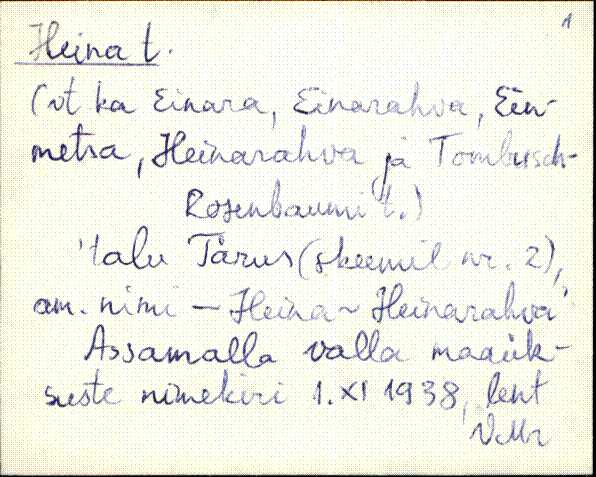 1
Heina t.
(vt ka Einara, Einarahva, Ein-
metsa, Heinarahva ja Tombusch-
Rosenbaumi t.)
'talu Tärus (skeemil nr. 2),
am. nimi – Heina ~ Heinarahva'
Assamalla valla maaük-
suste nimekiri 1. XI 1938, leht
VMr